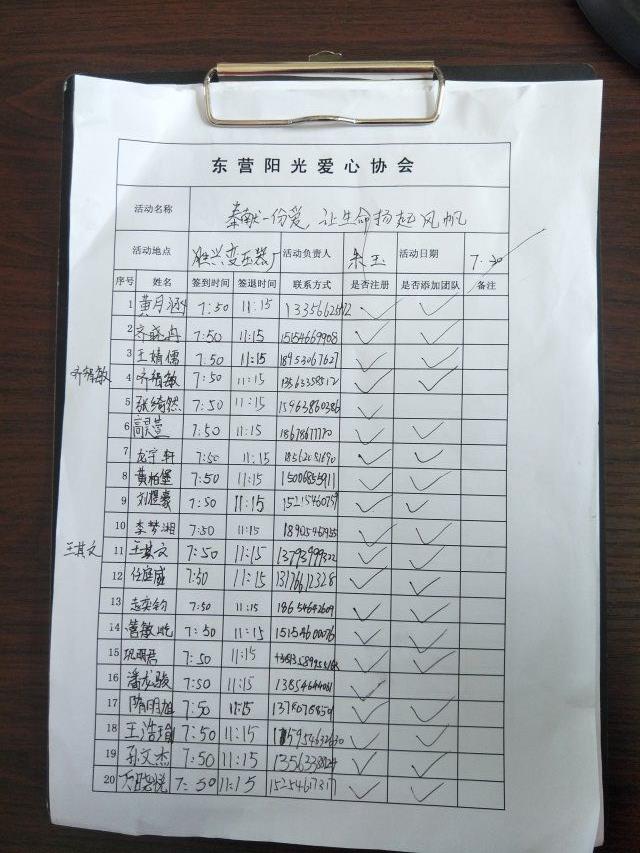 东营阳光爱心协会
活动名称 奉献一份爱,让生命扬起风帆
活动地点 胜兴变压器厂 活动负责人 朱玉 活动日期 7.30
序号 姓名 签到时间 签退时间 联系方式 是否注册 是否添加团队 备注
1 黄月涵 7:50 11:15 ✓ ✓
2 齐晓冉 7:50 11:15 15154669908 ✓ ✓
3 王婧儒 7:50 11:15 18953067627 ✓ ✓
4 7:50 11:15 13563358512 ✓ ✓
5 张绮然 7:50 11:15 15963860286 ✓
6 7:50 11:15 18678677770 ✓ ✓
7 龙宇轩 7:50 11:15 18562051690 ✓ ✓
8 黄柏堡 7:50 11:15 15006855911 ✓ ✓
9 7:50 11:15 ✓ ✓
10 李梦湘 7:50 11:15 ✓ ✓
王其文 11 王其文 7:50 11:15 13793999322 ✓ ✓
12 任庭威 7:50 11:15 13176612328 ✓ ✓
13 7:50 11:15 ✓ ✓
14 7:50 11:15 15154600076 ✓ ✓
15 巩明君 7:50 11:15 ✓ ✓
16 潘龙骏 7:50 11:15 ✓
17 隋明旭 7:50 11:15 ✓ ✓
18 王浩瑜 7:50 11:15 15954632630 ✓ ✓
19 孙文杰 7:50 11:15 ✓ ✓
20 7:50 11:15 15254617317 ✓ ✓